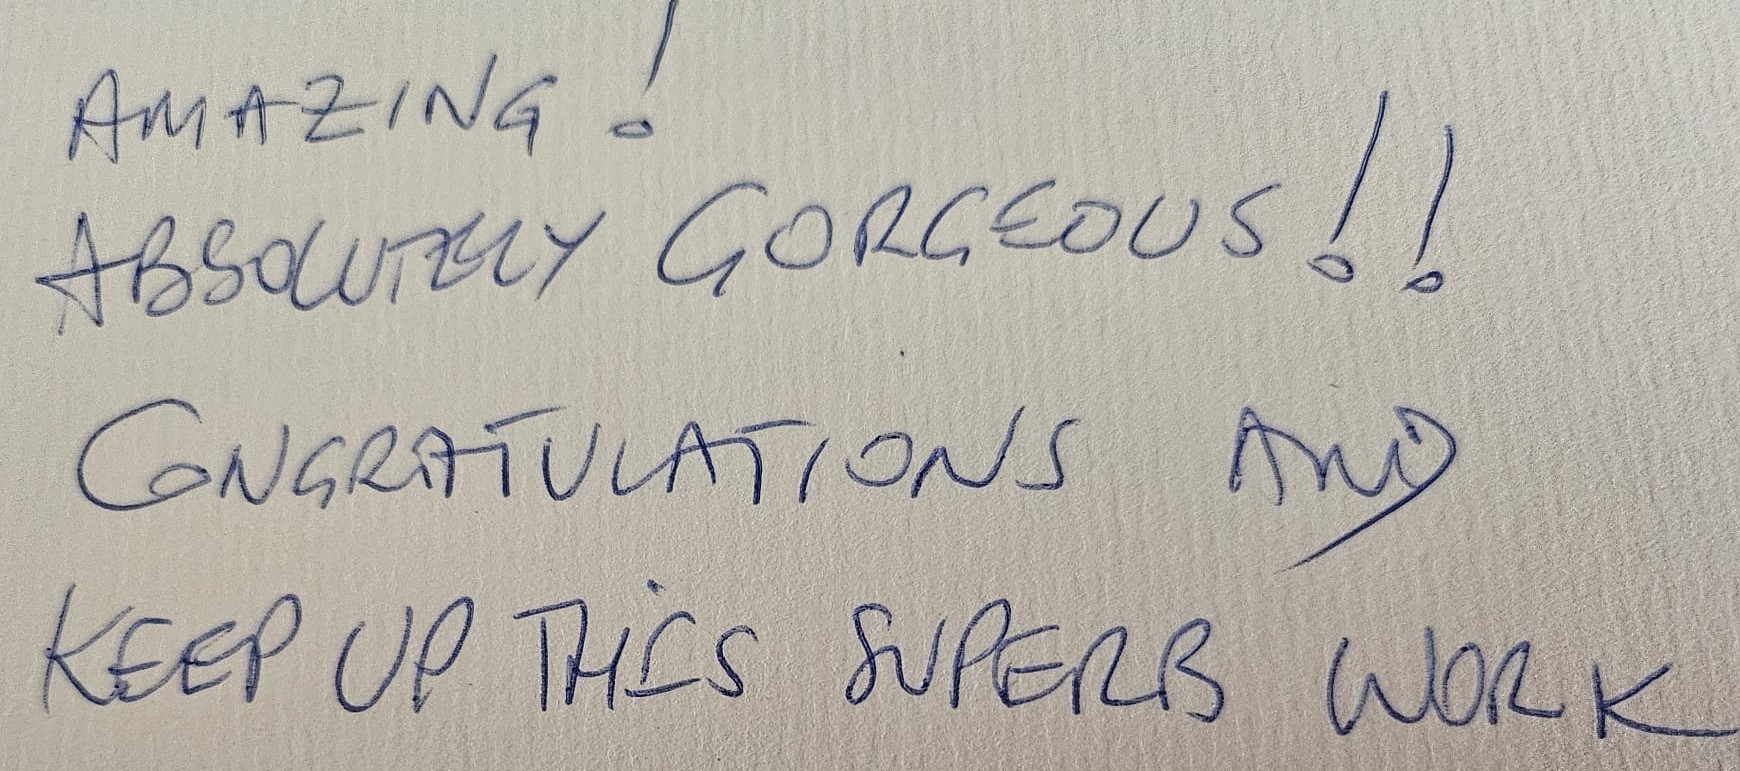 AMAZING!
ABSOLUTELY GORGEOUS!!
CONGRATULATIONS AND
KEEP UP THIS SUPERB WORK